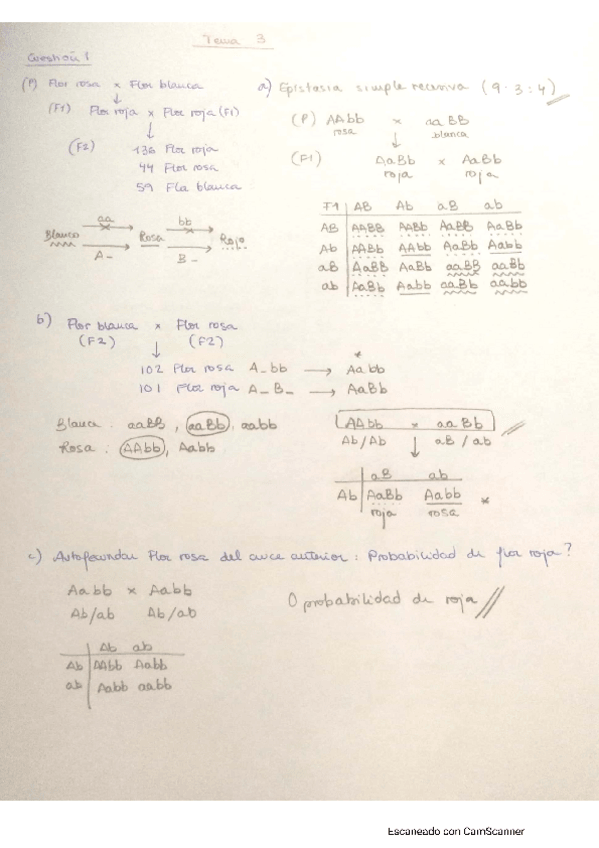 Tema 3
Cuestión 1
(P) Flor rosa x Flor blanca
(F1) Flor roja x Flor roja (F1)
(F2) 136 Flor roja
44 Flor rosa
59 Fla blanca
aa bb
Blanco Rosa Rojo
A_ B_
a) Epistasia simple recesiva (9:3:4)
(P) AAbb x aaBB
rosa blanca
(F1) AaBb x AaBb
roja roja
F1 AB Ab aB ab
AB AABB AABb AaBB AaBb
Ab AABb AAbb AaBb Aabb
aB AaBB AaBb aaBB aaBb
ab AaBb Aabb aaBb aabb
b) Flor blanca x Flor rosa
(F2) (F2)
102 Flor rosa A_bb → Aabb *
101 Flor roja A_B_ → AaBb
Blanca : aaBB, aaBb, aabb
Rosa : AAbb, Aabb
AAbb x aaBb
Ab/Ab aB/ab
aB ab
Ab AaBb Aabb *
roja rosa
c) Autofecundar Flor rosa del cruce anterior : Probabilidad de flor roja?
Aabb x Aabb
Ab/ab Ab/ab
0 probabilidad de roja
Ab ab
Ab AAbb Aabb
ab Aabb aabb
Escaneado con CamScanner